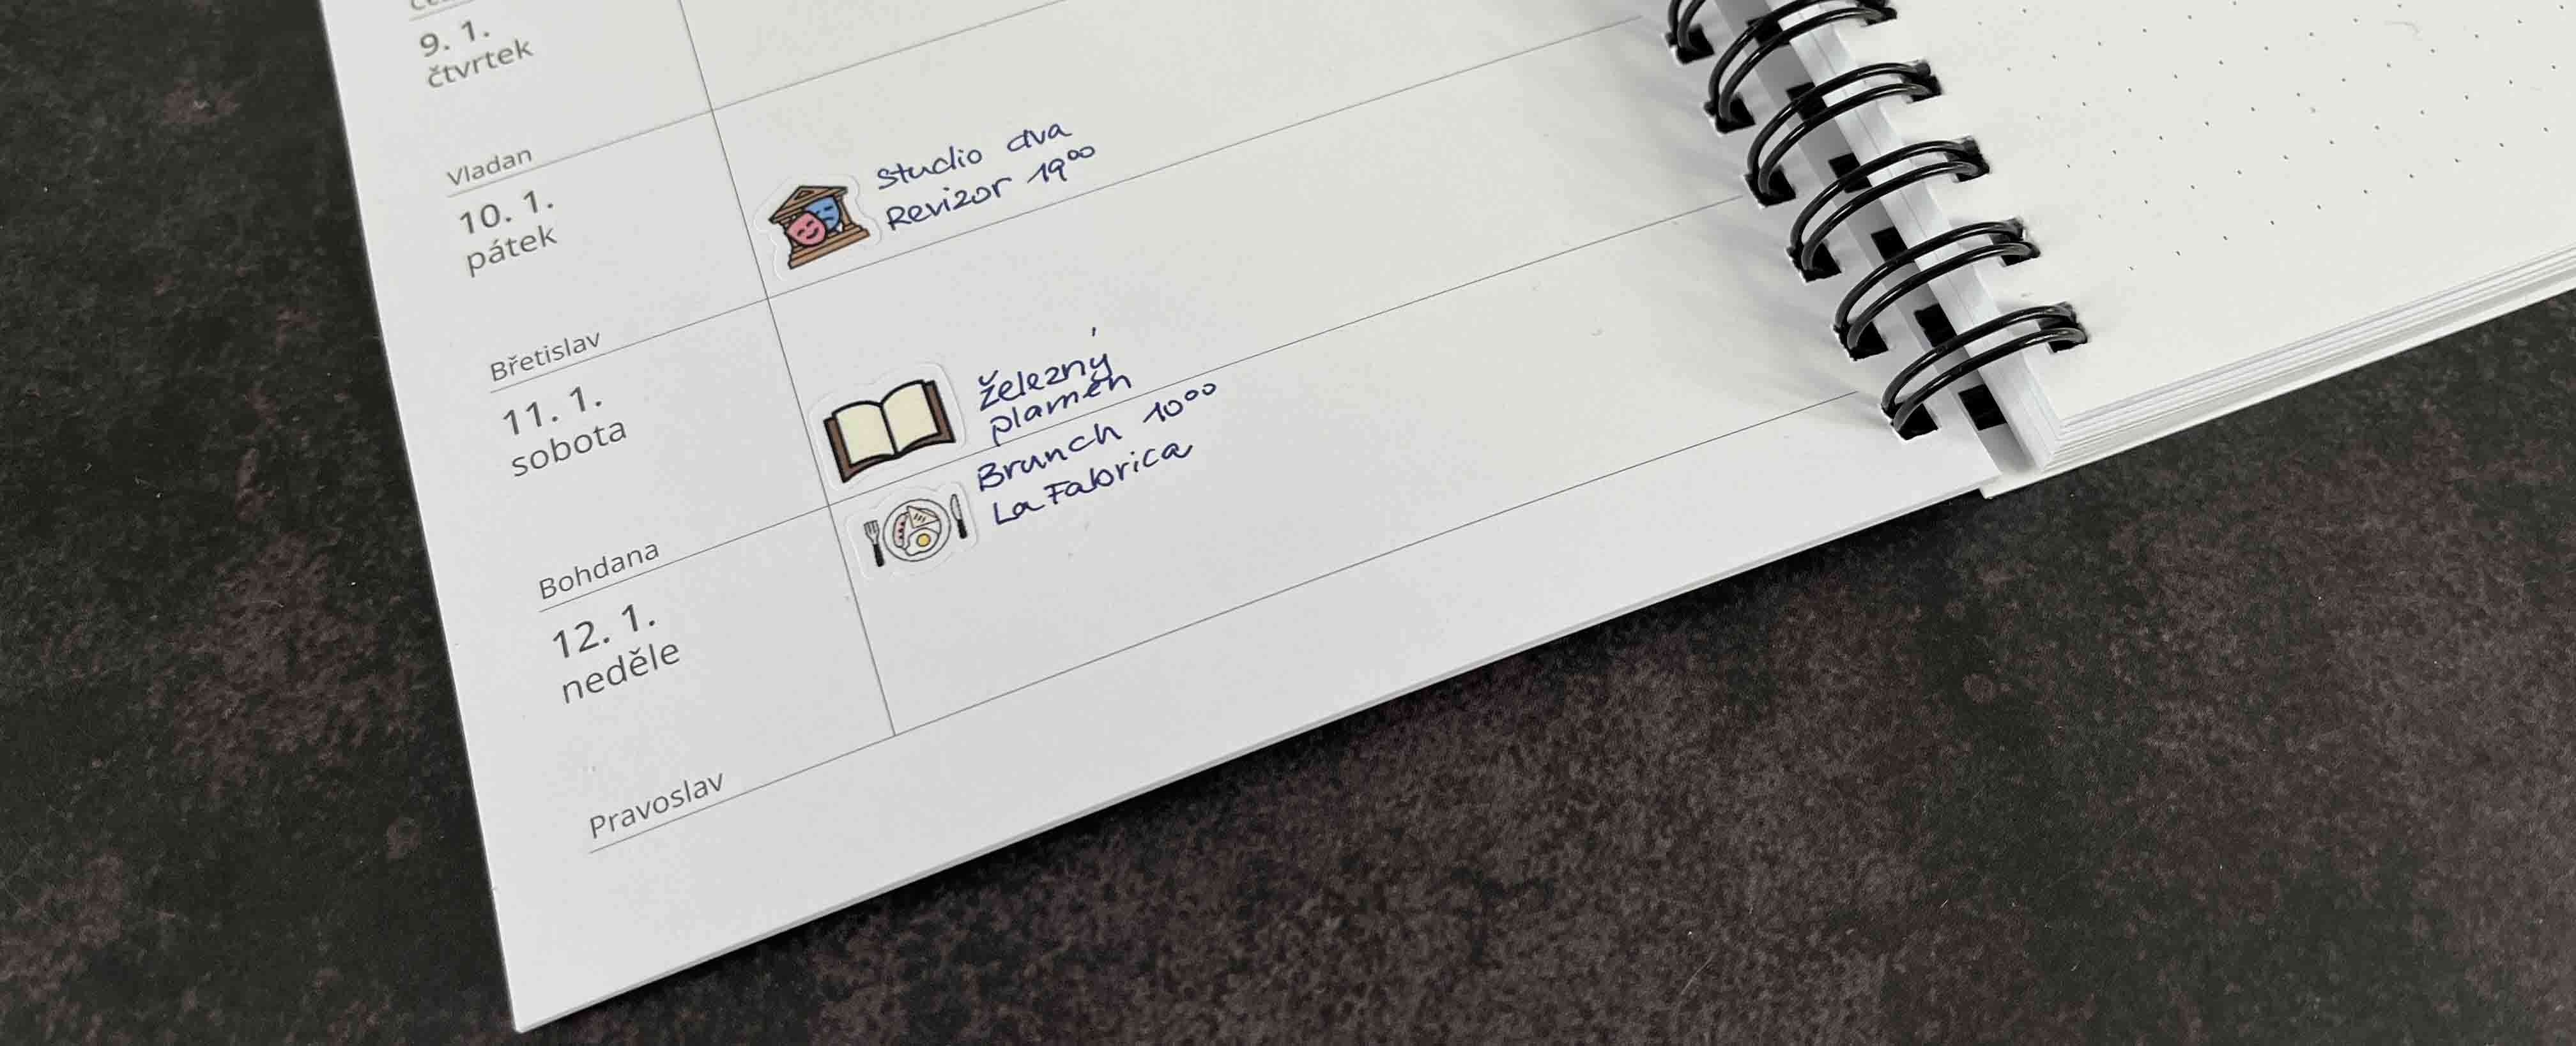 9. 1.
čtvrtek
Vladan
10. 1.
pátek
Studio dva
Revizor 19⁰⁰
Břetislav
11. 1.
sobota
Železný
plamen
Bohdana
12. 1.
neděle
Brunch 10⁰⁰
La Fabrica
Pravoslav